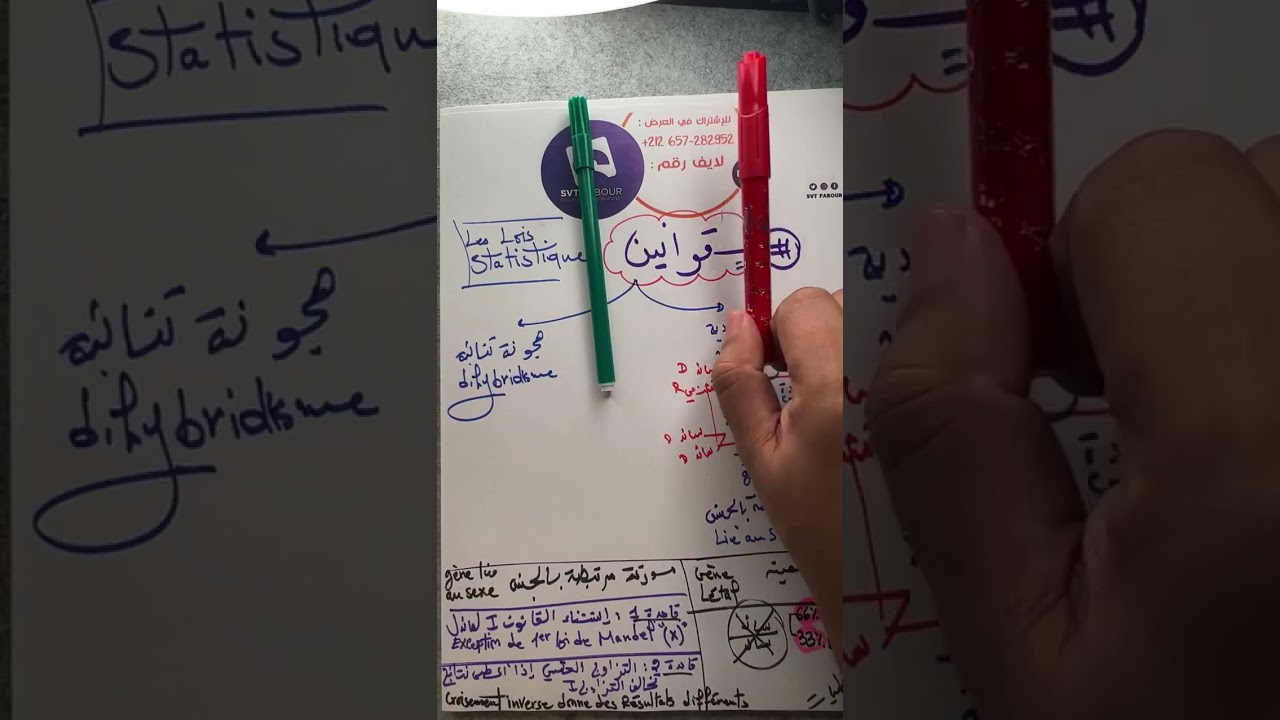 للإشتراك في العرض :
+212 657-282952
لايف رقم :
SVT FABOUR
SVT FABOUR
Les Lois
Statistique
قوانين
#
هجونة ثنائية
dihybridisme
D سائد
R
D سائد
D سائد
8
Lié au S
gène lié
au sexe
مورثة مرتبطة بالجنس
Gène
Létal
قاعدة 1 : إستثناء القانون I لماندل
Exception de 1er loi de Mandel (X)
سائد
سائد
66%
33%
قاعدة 2 : التزاوج العكسي إذا أعطى نتائج
تخالف التزاوج I
Croisement inverse donne des Résultats différents